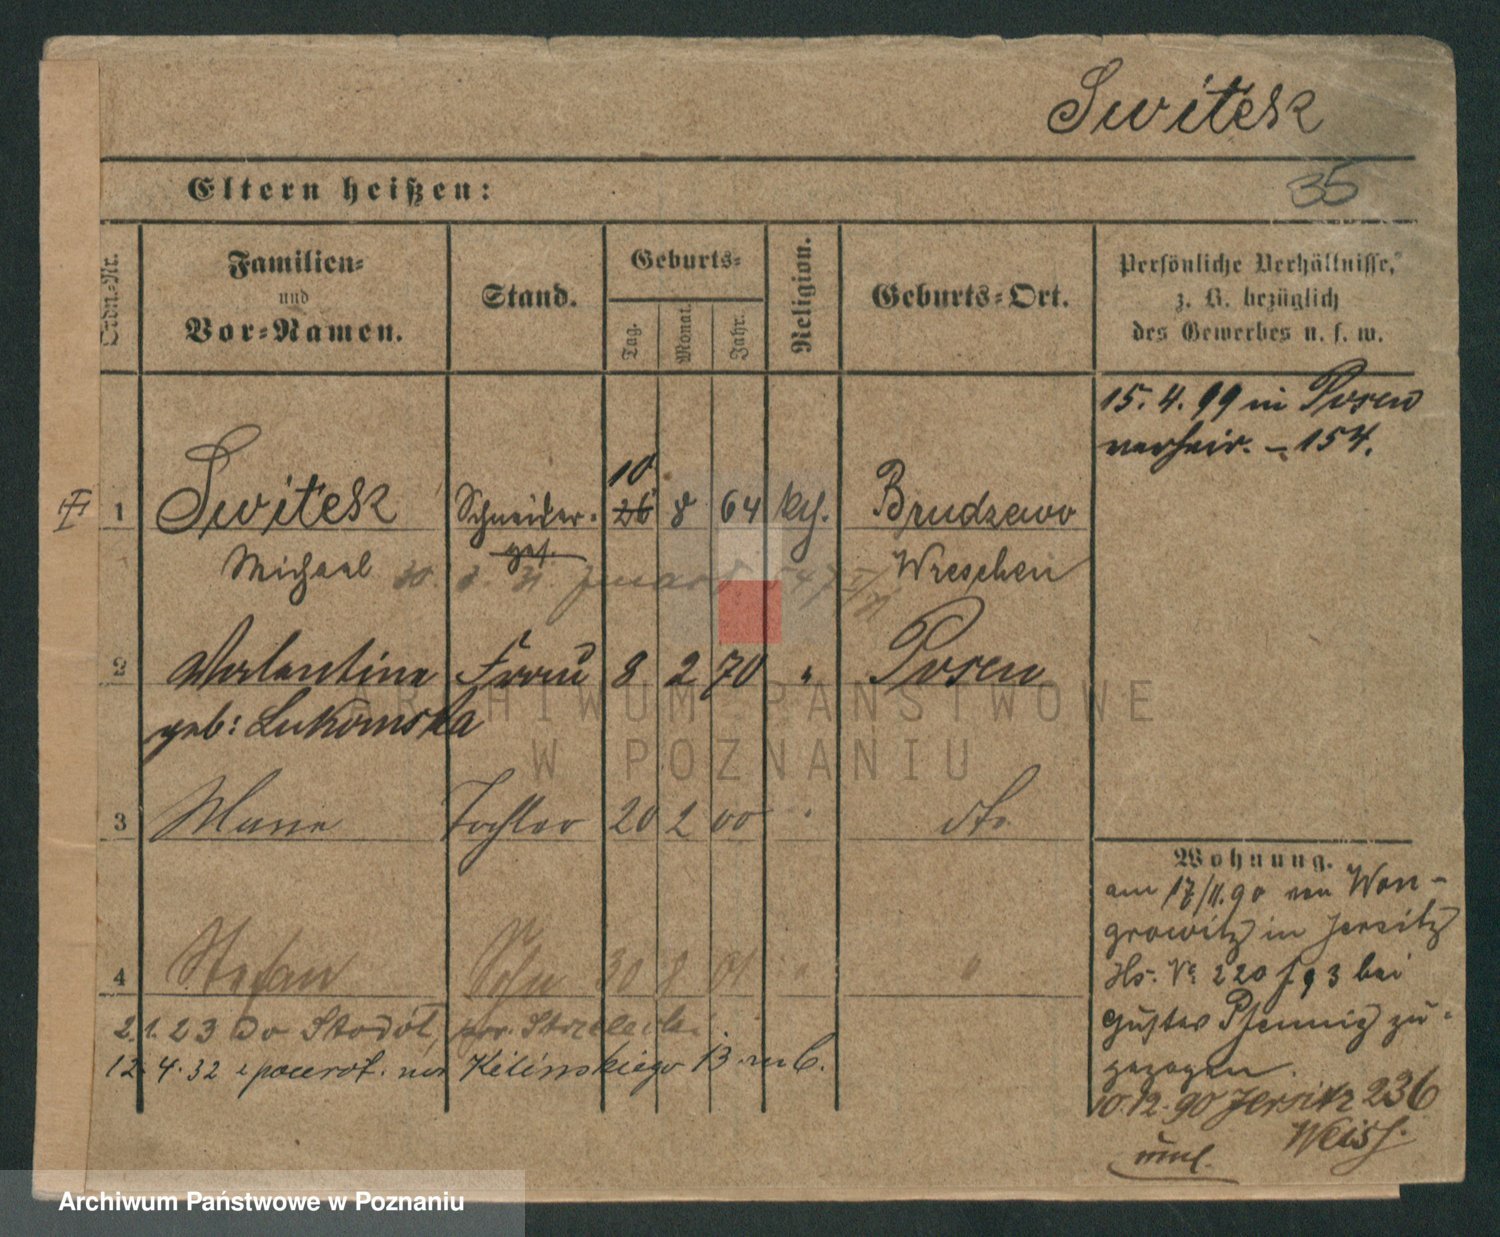 Switek
Eltern heißen:
35
Ordn.-Nr.
Familien-
und
Vor-Namen.
Stand.
Geburts-
Tag.
Monat.
Jahr.
Religion.
Geburts-Ort.
Persönliche Verhältnisse,
z. B. bezüglich
des Gewerbes u. s. w.
15. 4. 99 in Posen
verheir. – 154.
1 Switek Schneider- 10 26 8 64 kth. Brudzewo
Michael ges. Wreschen
2 Valentine Frau 8 2 70 " Posen
geb: Lukomska
3 Marie Tochter 20 2 00 " dto.
4 Stefan Sohn 30 8 01 " "
2.1.23 Do Stodół, pow. Strzelecki
12.4.32 i powrót. na Kilińskiego 13 m 6.
Wohnung.
am 17/11.90 von Won-
growitz in Jersitz
Hs. No 220 f 93 bei
Gustav Pfennig zu-
gezogen.
10.12.90 Jersitz 236
Weiß.
uml.
ARCHIWUM PAŃSTWOWE
W POZNANIU
Archiwum Państwowe w Poznaniu